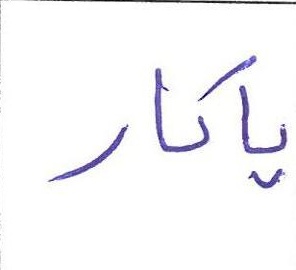 پاکار